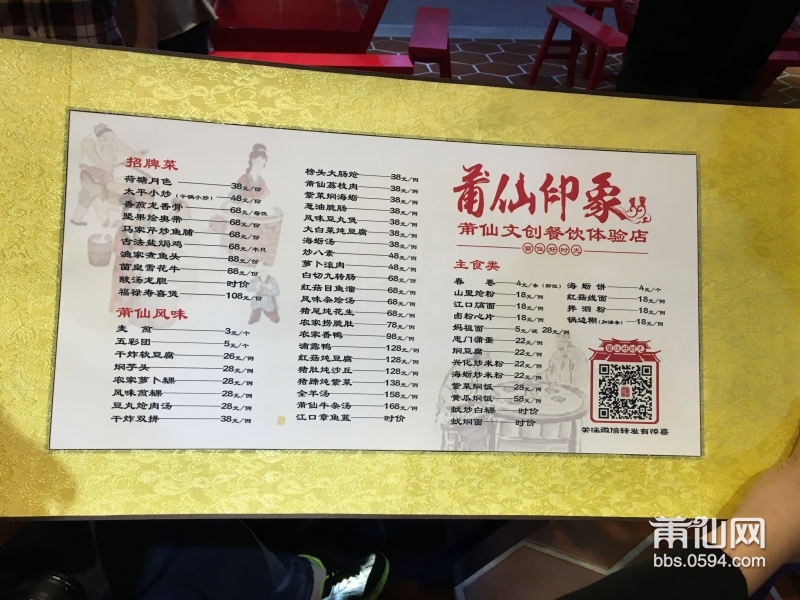 招牌菜
荷塘月色 38元/份
太平小炒(平锅小炒) 48元/份
香煎龙香骨 68元/每位
坚果烩奥带 68元/份
马家芹炒鱼脯 68元/份
古法盐焗鸡 68元/半只
渔家煮鱼头 88元/份
菌皇雪花牛 88元/份
酸汤龙胆 时价
福禄寿喜煲 108元/份
莆仙风味
麦煎 3元/个
五彩团 5元/个
干炸软豆腐 26元/例
焖芋头 28元/例
农家萝卜粿 28元/例
风味煎粿 28元/例
豆丸炝肉汤 28元/例
干炸双拼 38元/例
榜头大肠烩 38元/例
莆仙荔枝肉 38元/例
紫菜焖海蛎 38元/例
葱油脆肠 38元/例
风味豆丸煲 38元/例
大白菜炖豆腐 38元/例
海蛎汤 38元/例
炒八素 48元/例
萝卜滚肉 48元/例
白切九转肠 68元/例
红菇目鱼溜 68元/例
风味杂烩汤 68元/例
猪尾炖花生 68元/例
农家捞脆肚 78元/例
农家香鸭 98元/例
滴露鸭 128元/例
红菇炖豆腐 128元/例
猪肚炖沙丘 128元/例
猪蹄炖紫菜 138元/例
全羊汤 158元/例
莆仙牛杂汤 168元/例
江口章鱼蓝 时价
莆仙印象
莆仙文创餐饮体验店
留住好时光
主食类
春卷 4元/条(即位)
山里烩粉 18元/例
江口焖面 18元/例
卤粉心片 18元/例
妈祖面 5元/碗 28元/例
忠门蒲蛋 22元/例
焖豆腐 22元/例
兴化炒米粉 22元/例
海蛎炒米粉 22元/例
紫菜焖饭 28元/例
黄瓜焖饭 58元/例
蚊炒白粿 时价
蚊焖面 时价
海蛎饼 4元/个
红菇线面 18元/例
拌泗粉 18元/例
锅边糊(加油条) 18元/例
留住好时光
关注微信转发有惊喜
莆仙网
bbs.0594.com